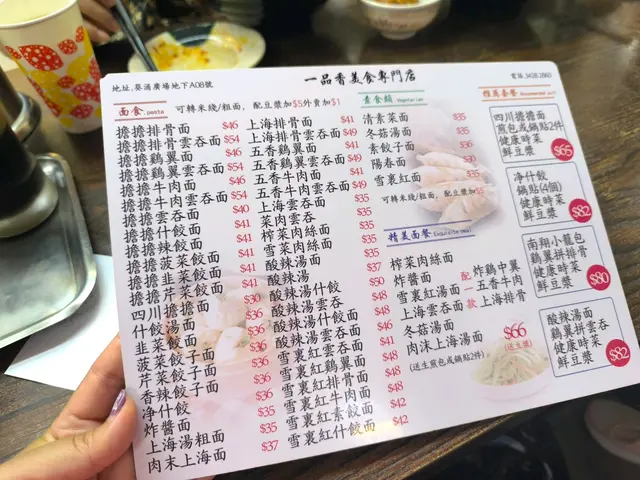 一品香美食專門店
地址.葵涌廣場地下A08號
電話.3428 2860
面食.pasta
可轉米綫/粗面, 配豆漿加$5外賣加$1
擔擔排骨面 $46
擔擔排骨雲吞面 $54
擔擔鷄翼面 $46
擔擔鷄翼雲吞面 $54
擔擔牛肉面 $46
擔擔牛肉雲吞面 $54
擔擔雲吞面 $40
擔擔什餃面 $41
擔擔辣餃面 $41
擔擔菠菜餃面 $41
擔擔韭菜餃面 $41
擔擔芹菜餃面 $41
四川擔擔面 $30
什餃湯面 $36
韭菜餃面 $36
菠菜餃子面 $36
芹菜餃子面 $36
香辣餃子面 $36
净什餃 $36
炸醬面 $35
上海湯粗面 $35
肉末上海面 $37
上海排骨面 $41
上海排骨雲吞面 $49
五香鷄翼面 $41
五香鷄翼雲吞面 $49
五香牛肉面 $41
五香牛肉雲吞面 $49
上海雲吞面 $35
菜肉雲吞 $35
榨菜肉絲面 $35
雪菜肉絲面 $35
酸辣湯面
酸辣湯
酸辣湯什餃
酸辣湯雲吞
酸辣湯什餃面
酸辣湯雲吞面
雪裏紅雲吞面
雪裏紅鷄翼面 $48
雪裏紅排骨面 $48
雪裏紅牛肉面 $48
雪裏紅素餃面 $42
雪裏紅什餃面 $42
素食類 Vegetarian
清素菜面 $35
冬菇湯面 $35
素餃子面 $36
陽春面 $30
雪裏紅面 $35
可轉米綫/粗面, 配豆漿加$5
精美面餐
榨菜肉絲面
炸醬面
雪裏紅湯面
上海雲吞面
冬菇湯面
肉沫上海湯面
配一款
炸鷄中翼
五香牛肉
上海排骨
$66
(送生漿)
(送生煎包或鍋貼2件)
推薦套餐
四川擔擔面
煎包或鍋貼2件
健康時菜
鮮豆漿
$65
净什餃
鍋貼(4個)
健康時菜
鮮豆漿
$82
南翔小籠包
鷄翼拼排骨
健康時菜
鮮豆漿
$80
酸辣湯面
鷄翼拼雲吞
健康時菜
鮮豆漿
$82